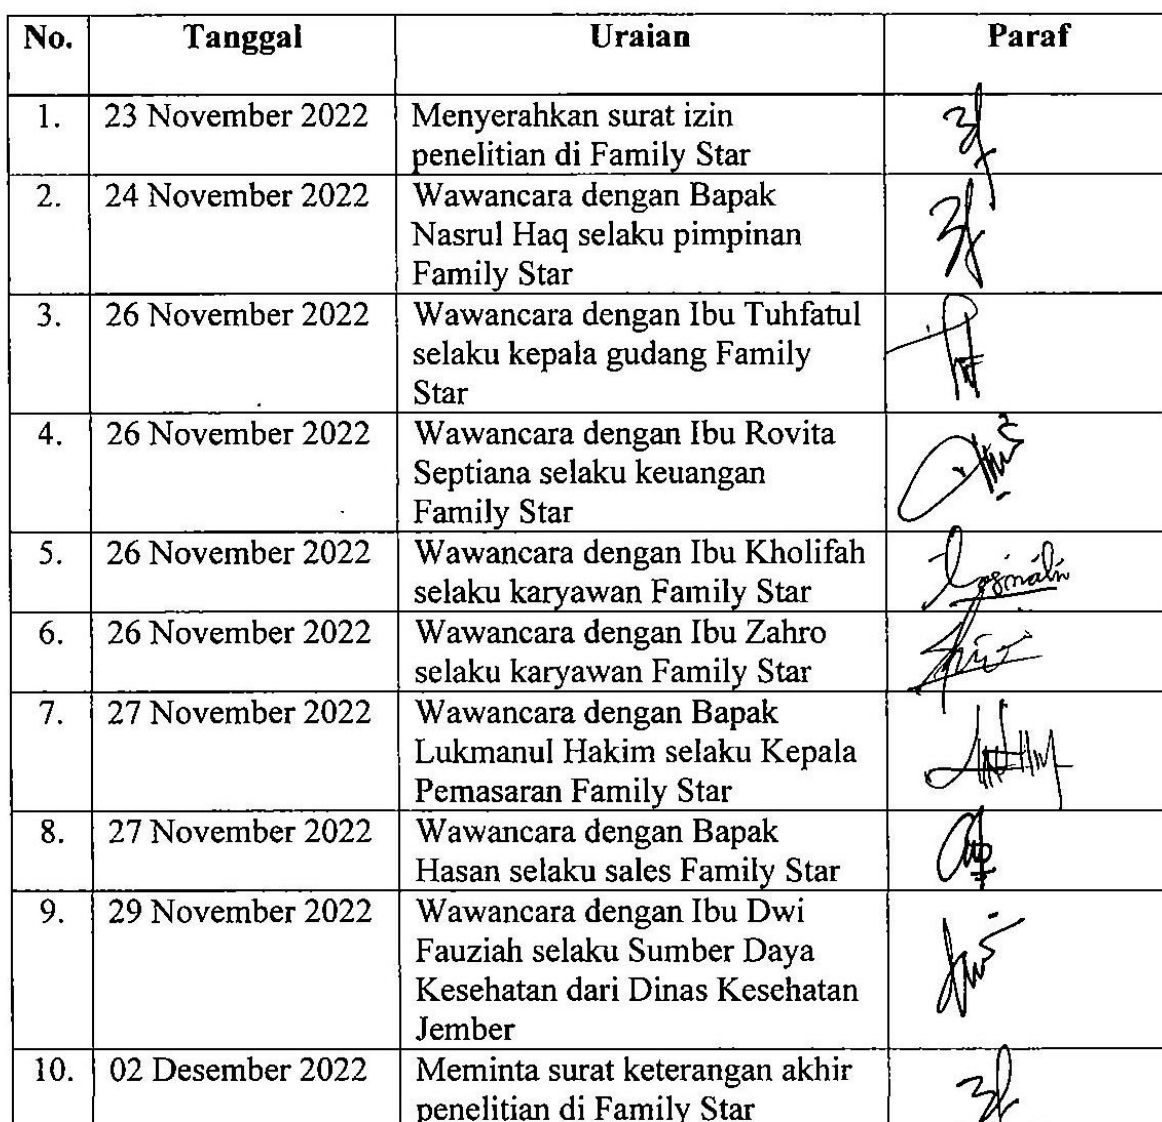 No. Tanggal Uraian Paraf
1. 23 November 2022 Menyerahkan surat izin
penelitian di Family Star
2. 24 November 2022 Wawancara dengan Bapak
Nasrul Haq selaku pimpinan
Family Star
3. 26 November 2022 Wawancara dengan Ibu Tuhfatul
selaku kepala gudang Family
Star
4. 26 November 2022 Wawancara dengan Ibu Rovita
Septiana selaku keuangan
Family Star
5. 26 November 2022 Wawancara dengan Ibu Kholifah
selaku karyawan Family Star
6. 26 November 2022 Wawancara dengan Ibu Zahro
selaku karyawan Family Star
7. 27 November 2022 Wawancara dengan Bapak
Lukmanul Hakim selaku Kepala
Pemasaran Family Star
8. 27 November 2022 Wawancara dengan Bapak
Hasan selaku sales Family Star
9. 29 November 2022 Wawancara dengan Ibu Dwi
Fauziah selaku Sumber Daya
Kesehatan dari Dinas Kesehatan
Jember
10. 02 Desember 2022 Meminta surat keterangan akhir
penelitian di Family Star